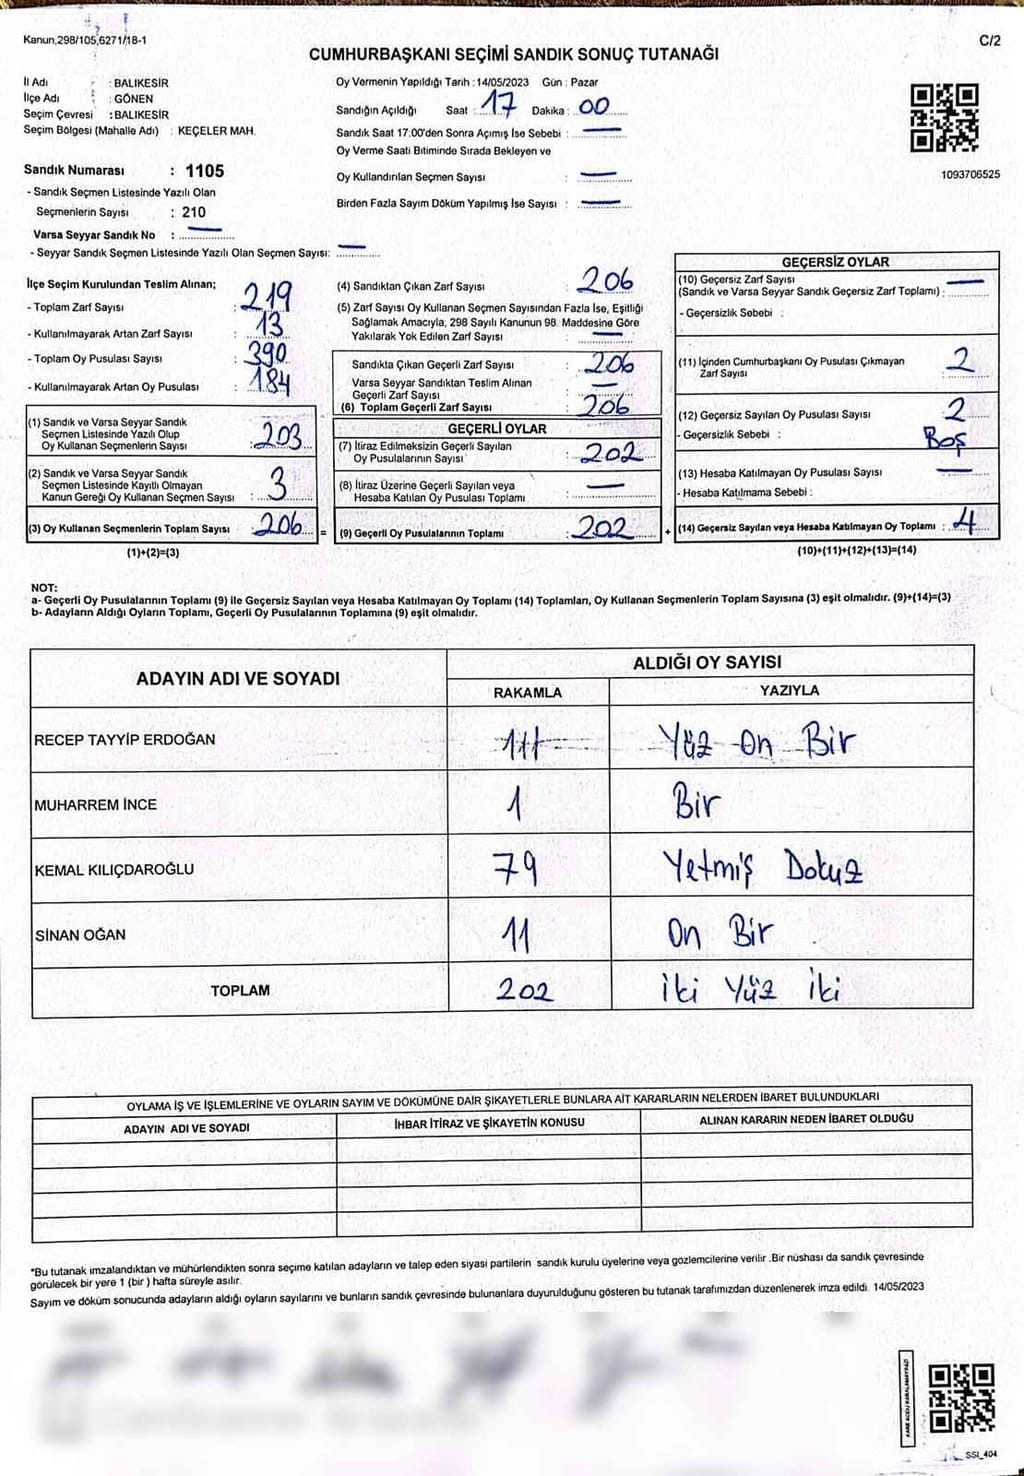 Kanun,298/105,6271/18-1
C/2
CUMHURBAŞKANI SEÇİMİ SANDIK SONUÇ TUTANAĞI
İl Adı : BALIKESİR
İlçe Adı : GÖNEN
Seçim Çevresi : BALIKESİR
Seçim Bölgesi (Mahalle Adı) : KEÇELER MAH.
Oy Vermenin Yapıldığı Tarih : 14/05/2023 Gün : Pazar
Sandığın Açıldığı Saat : 17 Dakika : 00
Sandık Saat 17.00'den Sonra Açımış İse Sebebi : —
Oy Verme Saati Bitiminde Sırada Bekleyen ve
Oy Kullandırılan Seçmen Sayısı : —
Birden Fazla Sayım Döküm Yapılmış İse Sayısı : —
1093706525
Sandık Numarası : 1105
- Sandık Seçmen Listesinde Yazılı Olan
Seçmenlerin Sayısı : 210
Varsa Seyyar Sandık No : —
- Seyyar Sandık Seçmen Listesinde Yazılı Olan Seçmen Sayısı: —
İlçe Seçim Kurulundan Teslim Alınan;
- Toplam Zarf Sayısı : 219
- Kullanılmayarak Artan Zarf Sayısı : 13
- Toplam Oy Pusulası Sayısı : 390
- Kullanılmayarak Artan Oy Pusulası : 184
(1) Sandık ve Varsa Seyyar Sandık
Seçmen Listesinde Yazılı Olup
Oy Kullanan Seçmenlerin Sayısı : 203
(2) Sandık ve Varsa Seyyar Sandık
Seçmen Listesinde Kayıtlı Olmayan
Kanun Gereği Oy Kullanan Seçmen Sayısı : 3
(3) Oy Kullanan Seçmenlerin Toplam Sayısı : 206 =
(1)+(2)=(3)
(4) Sandıktan Çıkan Zarf Sayısı : 206
(5) Zarf Sayısı Oy Kullanan Seçmen Sayısından Fazla İse, Eşitliği
Sağlamak Amacıyla, 298 Sayılı Kanunun 98. Maddesine Göre
Yakılarak Yok Edilen Zarf Sayısı : —
Sandıkta Çıkan Geçerli Zarf Sayısı : 206
Varsa Seyyar Sandıktan Teslim Alınan
Geçerli Zarf Sayısı : —
(6) Toplam Geçerli Zarf Sayısı : 206
GEÇERLİ OYLAR
(7) İtiraz Edilmeksizin Geçerli Sayılan
Oy Pusulalarının Sayısı : 202
(8) İtiraz Üzerine Geçerli Sayılan veya
Hesaba Katılan Oy Pusulası Toplamı : —
(9) Geçerli Oy Pusulalarının Toplamı : 202 +
GEÇERSİZ OYLAR
(10) Geçersiz Zarf Sayısı
(Sandık ve Varsa Seyyar Sandık Geçersiz Zarf Toplamı) : —
- Geçersizlik Sebebi :
(11) İçinden Cumhurbaşkanı Oy Pusulası Çıkmayan
Zarf Sayısı : 2
(12) Geçersiz Sayılan Oy Pusulası Sayısı : 2
- Geçersizlik Sebebi : Boş
(13) Hesaba Katılmayan Oy Pusulası Sayısı : —
- Hesaba Katılmama Sebebi :
(14) Geçersiz Sayılan veya Hesaba Katılmayan Oy Toplamı : 4
(10)+(11)+(12)+(13)=(14)
NOT:
a- Geçerli Oy Pusulalarının Toplamı (9) ile Geçersiz Sayılan veya Hesaba Katılmayan Oy Toplamı (14) Toplamları, Oy Kullanan Seçmenlerin Toplam Sayısına (3) eşit olmalıdır. (9)+(14)=(3)
b- Adayların Aldığı Oyların Toplamı, Geçerli Oy Pusulalarının Toplamına (9) eşit olmalıdır.
ADAYIN ADI VE SOYADI
ALDIĞI OY SAYISI
RAKAMLA YAZIYLA
RECEP TAYYİP ERDOĞAN 111 Yüz On Bir
MUHARREM İNCE 1 Bir
KEMAL KILIÇDAROĞLU 79 Yetmiş Dokuz
SİNAN OĞAN 11 On Bir
TOPLAM 202 İki Yüz İki
OYLAMA İŞ VE İŞLEMLERİNE VE OYLARIN SAYIM VE DÖKÜMÜNE DAİR ŞİKAYETLERLE BUNLARA AİT KARARLARIN NELERDEN İBARET BULUNDUKLARI
ADAYIN ADI VE SOYADI İHBAR İTİRAZ VE ŞİKAYETİN KONUSU ALINAN KARARIN NEDEN İBARET OLDUĞU
*Bu tutanak imzalandıktan ve mühürlendikten sonra seçime katılan adayların ve talep eden siyasi partilerin sandık kurulu üyelerine veya gözlemcilerine verilir .Bir nüshası da sandık çevresinde
görülecek bir yere 1 (bir ) hafta süreyle asılır.
Sayım ve döküm sonucunda adayların aldığı oyların sayılarını ve bunların sandık çevresinde bulunanlara duyurulduğunu gösteren bu tutanak tarafımızdan düzenlenerek imza edildi. 14/05/2023
SSI_404